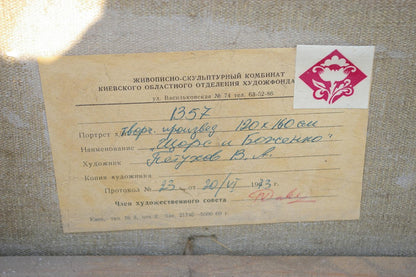 ЖИВОПИСНО-СКУЛЬПТУРНЫЙ КОМБИНАТ
КИЕВСКОГО ОБЛАСТНОГО ОТДЕЛЕНИЯ ХУДФОНДА
ул. Васильковская № 74 тел. 63-52-86
1357
Портрет х Творч. произвед 120 х 160 см
Наименование „Щорс и Боженко"
Художник Петухов В. А.
Копия художника
Протокол № 23 от 20/VI 1973 г.
Член художественного совета
Киев, тип. № 8, зак. 21740—5000